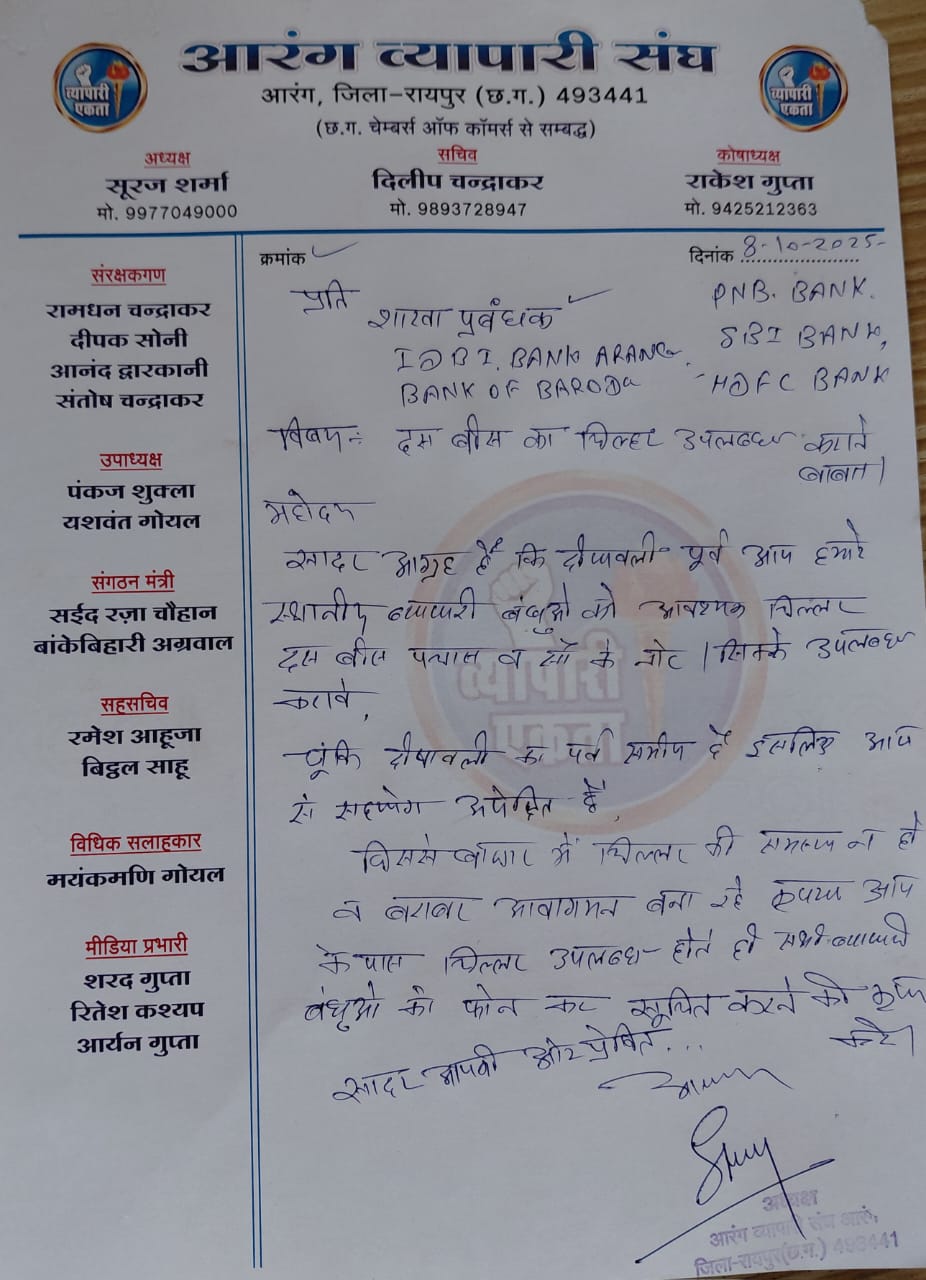 आरंग व्यापारी संघ
व्यापारी
एकता
व्यापारी
एकता
आरंग, जिला-रायपुर (छ.ग.) 493441
(छ.ग. चेम्बर्स ऑफ कॉमर्स से सम्बद्ध)
अध्यक्ष
सूरज शर्मा
मो. 9977049000
सचिव
दिलीप चन्द्राकर
मो. 9893728947
कोषाध्यक्ष
राकेश गुप्ता
मो. 9425212363
संरक्षकगण
रामधन चन्द्राकर
दीपक सोनी
आनंद द्वारकानी
संतोष चन्द्राकर
उपाध्यक्ष
पंकज शुक्ला
यशवंत गोयल
संगठन मंत्री
सईद रज़ा चौहान
बांकेबिहारी अग्रवाल
सहसचिव
रमेश आहूजा
बिट्ठल साहू
विधिक सलाहकार
मयंकमणि गोयल
मीडिया प्रभारी
शरद गुप्ता
रितेश कश्यप
आर्यन गुप्ता
क्रमांक
दिनांक 8-10-2025
प्रति
शाखा प्रबंधक
IDBI. BANK ARANG
BANK OF BARODA
PNB. BANK.
SBI BANK,
HDFC BANK
विषय :- दस बीस का चिल्हर उपलब्ध कराने
बाबत।
महोदय
सादर आग्रह है कि दीपावली पूर्व आप हमारे
स्थानीय व्यापारी बंधुओ को आवश्यक चिल्लर
दस बीस पचास व सौ के नोट / सिक्के उपलब्ध
करावे,
चूंकि दीपावली का पर्व समीप है इसलिए आप
से सहयोग अपेक्षित है,
जिससे बाजार में चिल्लर की समस्या न हो
व बराबर आवागमन बना रहे कृपया आप
के पास चिल्लर उपलब्ध होते ही सभी व्यापारी
बंधुओ को फोन कर सूचित करने की कृपा
करे।
सादर आपकी ओर प्रेषित...
व्यापारी
एकता
अध्यक्ष
आरंग व्यापारी संघ आरंग,
जिला-रायपुर(छ.ग.) 493441